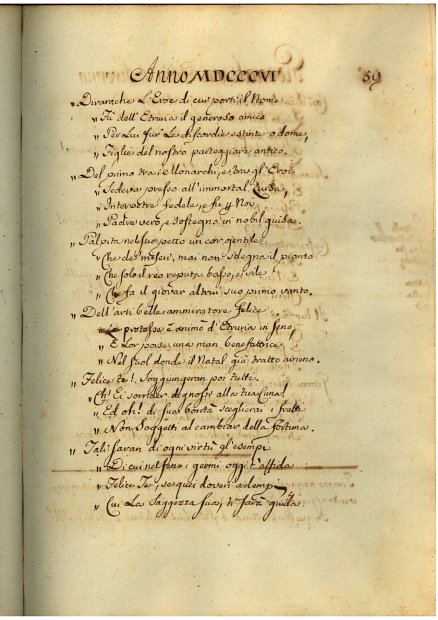 Anno MDCCCVI
59
„ Diranti che L'Eroe di cui porti il Nome
„ Fù dell'Etruria il generoso amico
„ Per Lui fur Le discordie estinte o dome,
„ Figlie del nostro parteggiare antico.
„ Del primo trai Monarchi, e tra gl'Eroi
„ Sedeva presso all'immortal
„ Interprete fedele, e fu Noi
„ Padre vero, e sostegno in nobil guisa.
„ Palpita nel suo petto un cor gentile
„ Che de' miseri, mai non sdegna il pianto
„ Che solo il reo reputa basso, e vile
„ Che fa il giovar altrui suo primo vanto.
„ Dell'arti belle ammiratore felice
„ Le protesse e animò d'Etruria in seno,
„ E Lor porse una man benefattrice
„ Nel suol donde il Natal già trasse
„ Felice te! Soggiungeran poi tutti
„ Ch' Ei sorrider degnossi alla tua Cuna!
„ Ed oh! di sua bontà sceglierai i frutti
„ Non Soggetti al cambiar della fortuna.
„ Tali saran di ogni virtù gl'esempi
„ Di cui nel seno i germi oggi t'affida
„ Felice Te, se quei doveri adempi
„ Cui La Saggezza sua, ti sarà guida